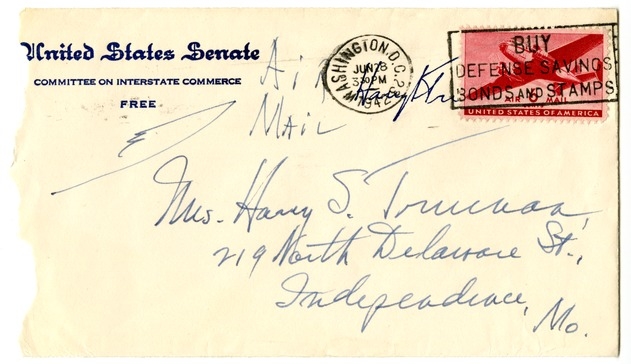 United States Senate
COMMITTEE ON INTERSTATE COMMERCE
FREE
Air
Mail
WASHINGTON, D.C.
JUN 23
3 30 PM
1942
BUY
DEFENSE SAVINGS
BONDS AND STAMPS
AIR MAIL
UNITED STATES OF AMERICA
Mrs. Harry S. Truman
219 North Delaware St.,
Independence,
Mo.